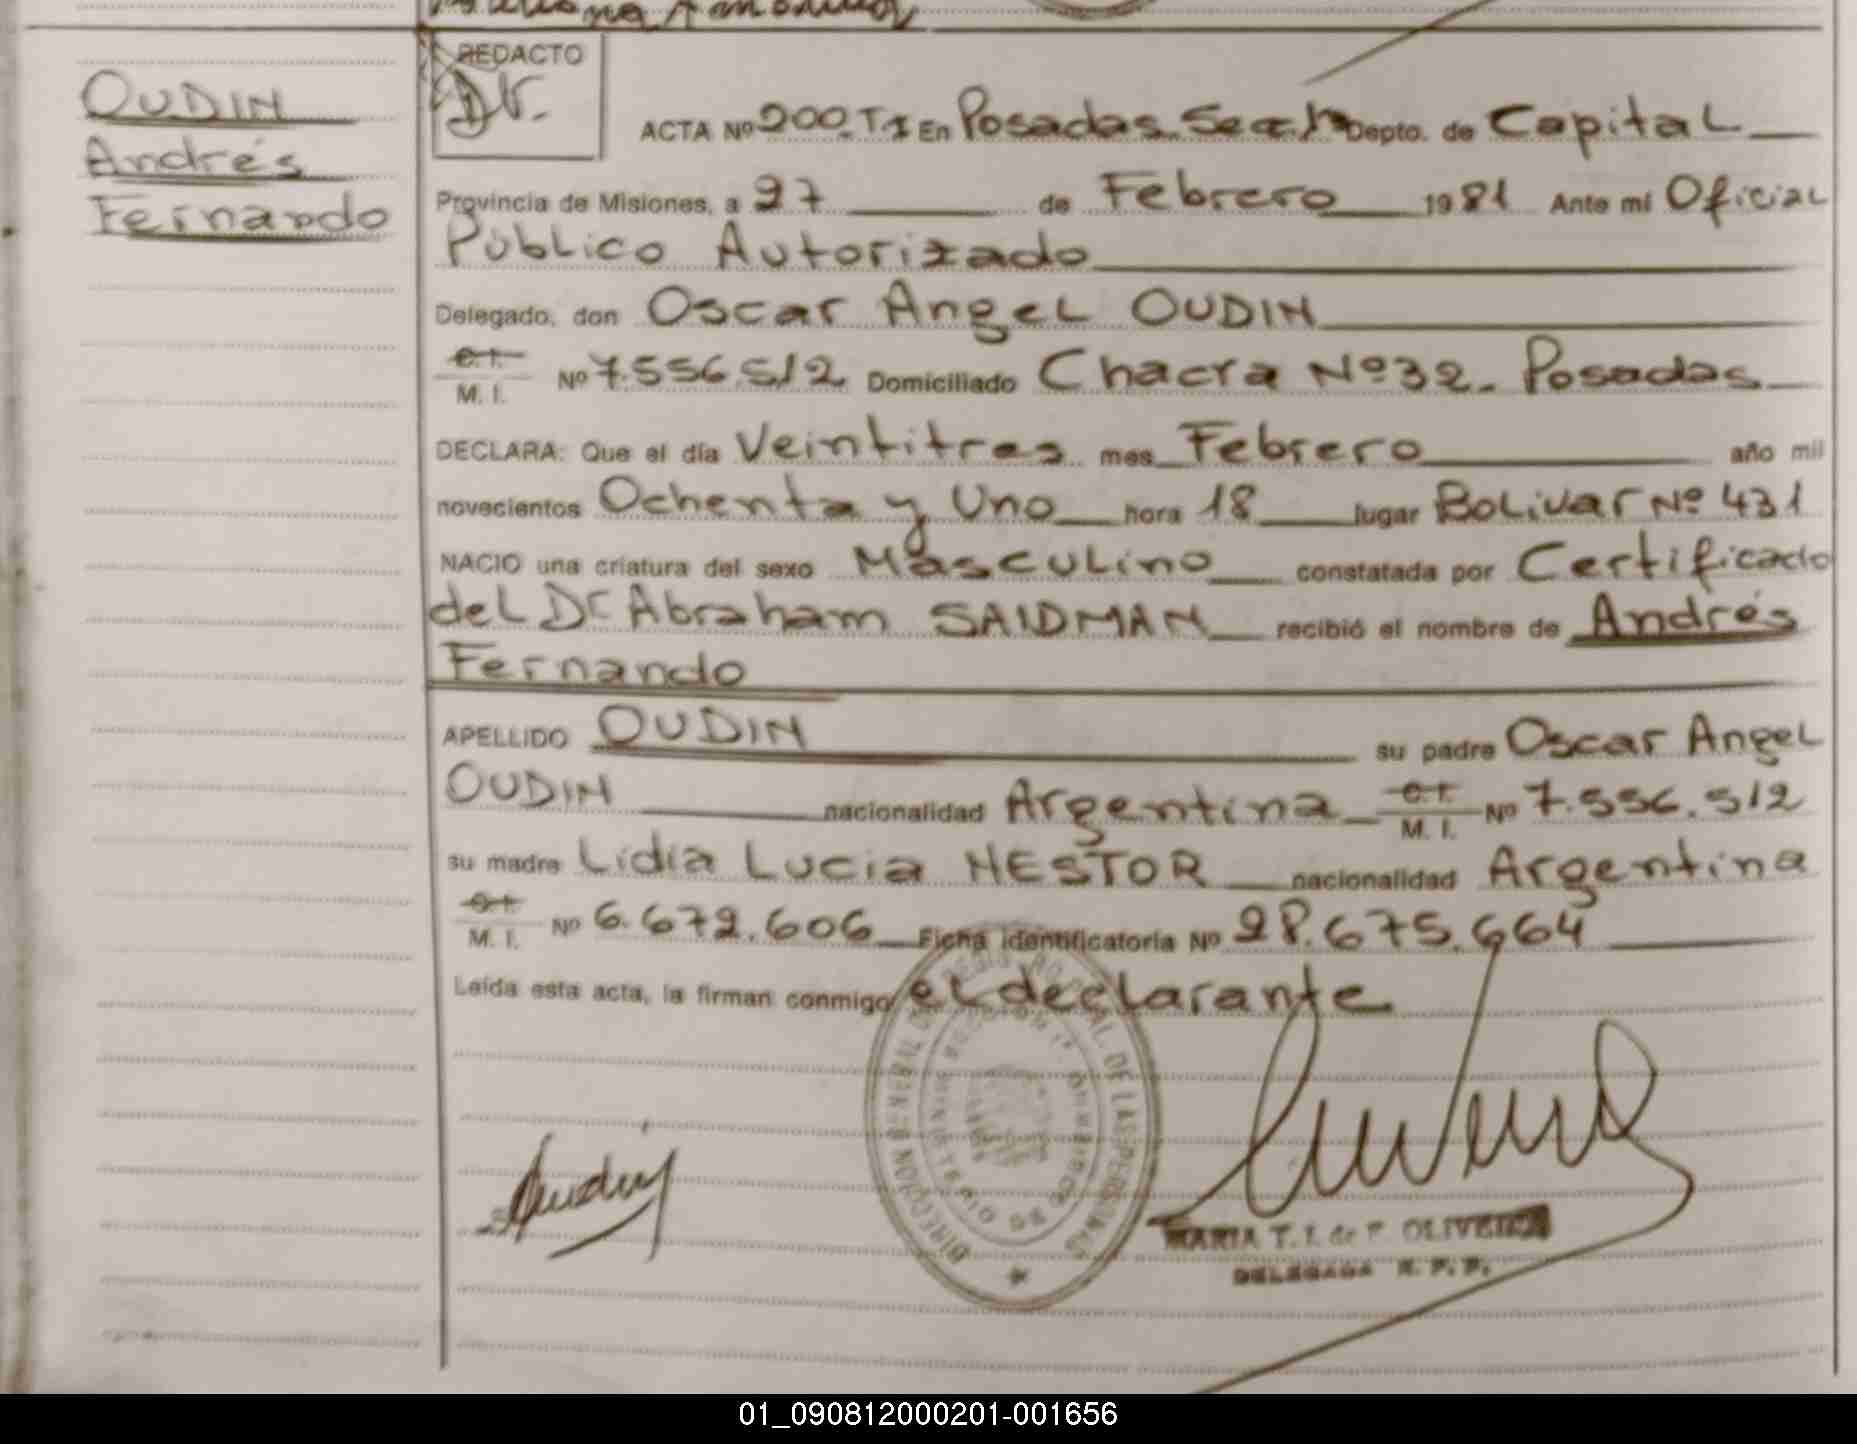 OUDIN
Andrés
Fernando
REDACTO
ACTA Nº 200. T1 En Posadas. Secc. 1ª Depto. de Capital
Provincia de Misiones, a 27 de Febrero 1981 Ante mi Oficial
Público Autorizado
Delegado, don Oscar Angel OUDIN
C. I.
M. I. Nº 7.556.512 Domiciliado Chacra Nº 32. Posadas
DECLARA: Que el día Veintitres mes Febrero año mil
novecientos Ochenta y Uno hora 18 lugar Bolivar Nº 431
NACIO una criatura del sexo Masculino constatada por Certificado
del Dr Abraham SAIDMAN recibió el nombre de Andrés
Fernando
APELLIDO OUDIN su padre Oscar Angel
OUDIN nacionalidad Argentina C. I. M. I. Nº 7.556.512
su madre Lidia Lucia NESTOR nacionalidad Argentina
C. I.
M. I. Nº 6.672.606 Ficha identificatoria Nº 28.675.664
Leída esta acta, la firman conmigo el declarante
DIRECCION GENERAL DEL REGISTRO PCIAL. DE LAS PERSONAS
MARIA T. I. de F. OLIVEIRA
DELEGADA R. P. P.
01_090812000201-001656